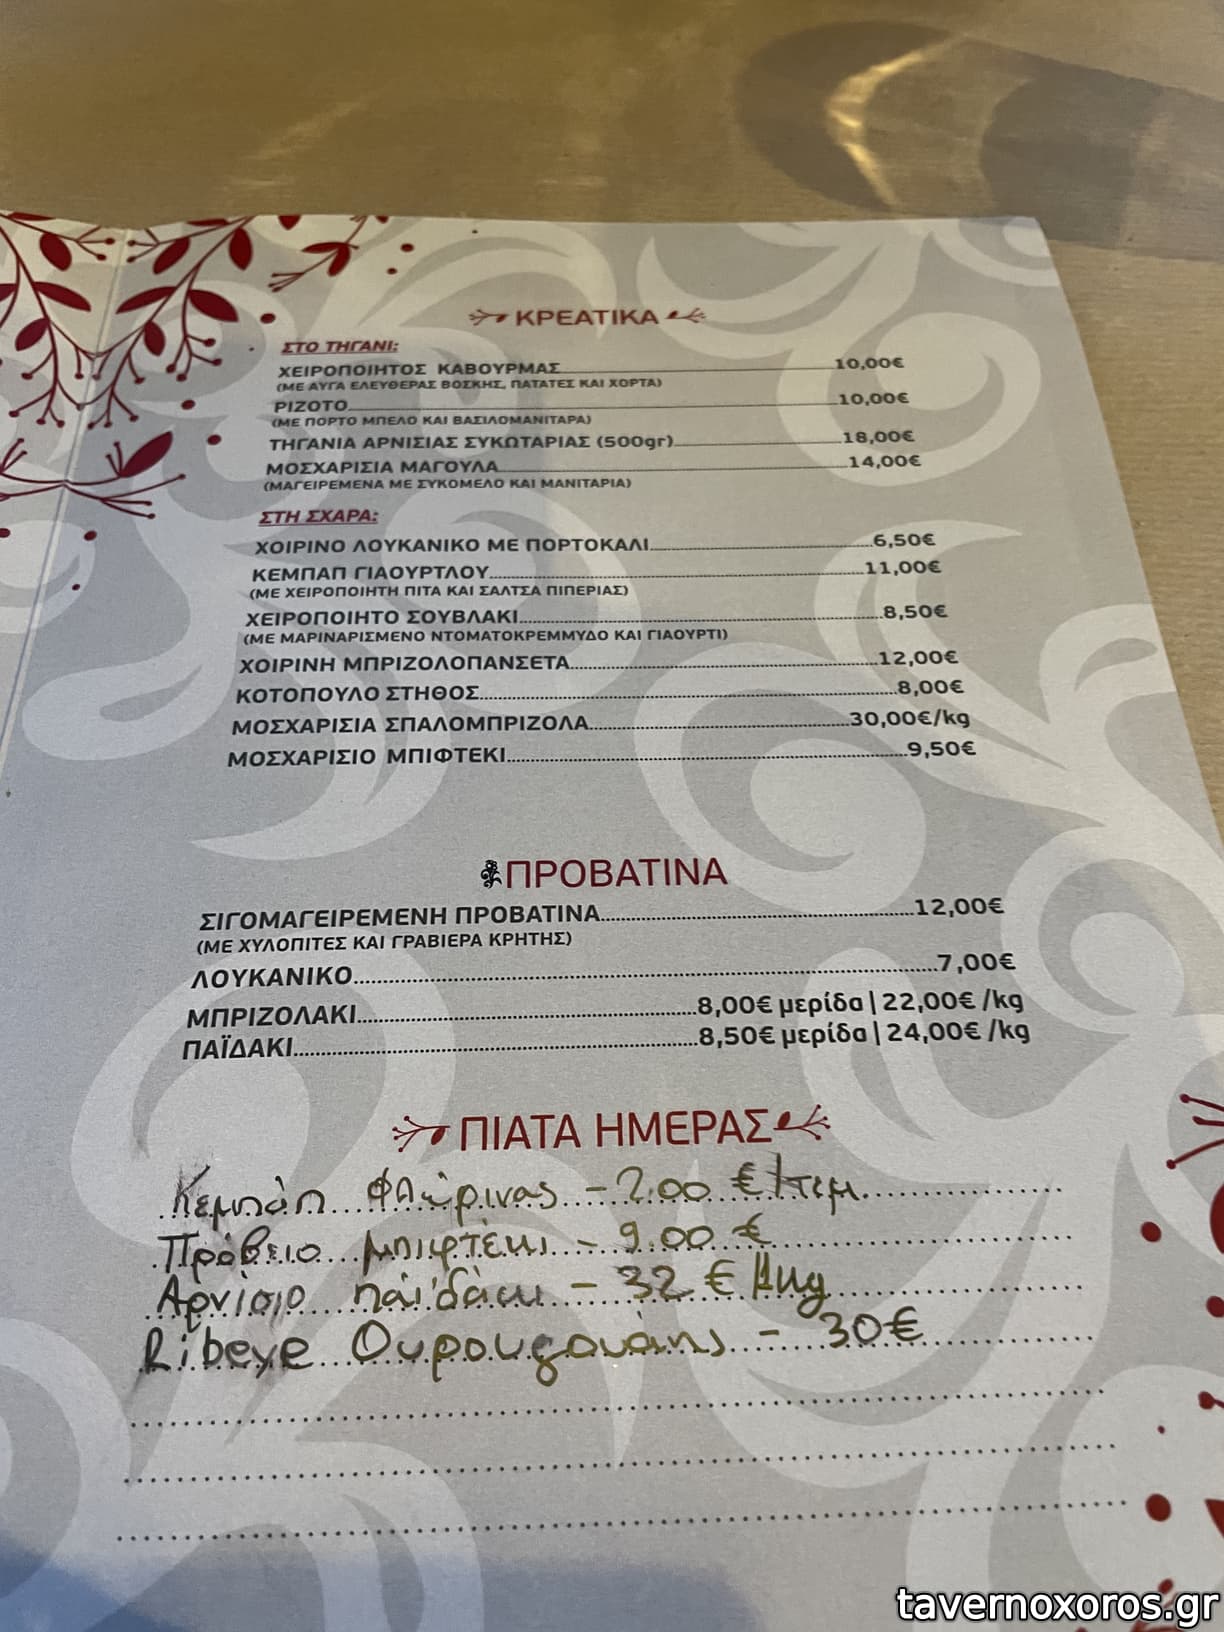 ΚΡΕΑΤΙΚΑ
ΣΤΟ ΤΗΓΑΝΙ:
ΧΕΙΡΟΠΟΙΗΤΟΣ ΚΑΒΟΥΡΜΑΣ 10,00€
(ΜΕ ΑΥΓΑ ΕΛΕΥΘΕΡΑΣ ΒΟΣΚΗΣ, ΠΑΤΑΤΕΣ ΚΑΙ ΧΟΡΤΑ)
ΡΙΖΟΤΟ 10,00€
(ΜΕ ΠΟΡΤΟ ΜΠΕΛΟ ΚΑΙ ΒΑΣΙΛΟΜΑΝΙΤΑΡΑ)
ΤΗΓΑΝΙΑ ΑΡΝΙΣΙΑΣ ΣΥΚΩΤΑΡΙΑΣ (500gr) 18,00€
ΜΟΣΧΑΡΙΣΙΑ ΜΑΓΟΥΛΑ 14,00€
(ΜΑΓΕΙΡΕΜΕΝΑ ΜΕ ΣΥΚΟΜΕΛΟ ΚΑΙ ΜΑΝΙΤΑΡΙΑ)
ΣΤΗ ΣΧΑΡΑ:
ΧΟΙΡΙΝΟ ΛΟΥΚΑΝΙΚΟ ΜΕ ΠΟΡΤΟΚΑΛΙ 6,50€
ΚΕΜΠΑΠ ΓΙΑΟΥΡΤΛΟΥ 11,00€
(ΜΕ ΧΕΙΡΟΠΟΙΗΤΗ ΠΙΤΑ ΚΑΙ ΣΑΛΤΣΑ ΠΙΠΕΡΙΑΣ)
ΧΕΙΡΟΠΟΙΗΤΟ ΣΟΥΒΛΑΚΙ 8,50€
(ΜΕ ΜΑΡΙΝΑΡΙΣΜΕΝΟ ΝΤΟΜΑΤΟΚΡΕΜΜΥΔΟ ΚΑΙ ΓΙΑΟΥΡΤΙ)
ΧΟΙΡΙΝΗ ΜΠΡΙΖΟΛΟΠΑΝΣΕΤΑ 12,00€
ΚΟΤΟΠΟΥΛΟ ΣΤΗΘΟΣ 8,00€
ΜΟΣΧΑΡΙΣΙΑ ΣΠΑΛΟΜΠΡΙΖΟΛΑ 30,00€/kg
ΜΟΣΧΑΡΙΣΙΟ ΜΠΙΦΤΕΚΙ 9,50€
ΠΡΟΒΑΤΙΝΑ
ΣΙΓΟΜΑΓΕΙΡΕΜΕΝΗ ΠΡΟΒΑΤΙΝΑ 12,00€
(ΜΕ ΧΥΛΟΠΙΤΕΣ ΚΑΙ ΓΡΑΒΙΕΡΑ ΚΡΗΤΗΣ)
ΛΟΥΚΑΝΙΚΟ 7,00€
ΜΠΡΙΖΟΛΑΚΙ 8,00€ μερίδα | 22,00€ /kg
ΠΑΪΔΑΚΙ 8,50€ μερίδα | 24,00€ /kg
ΠΙΑΤΑ ΗΜΕΡΑΣ
Κεμπάπ Φλώρινας - 2.00 €/τεμ.
Πρόβειο μπιφτέκι - 9.00 €
Αρνίσιο παϊδάκι - 32 € /1kg
Ribeye Ουρουγουάης - 30€
tavernoxoros.gr